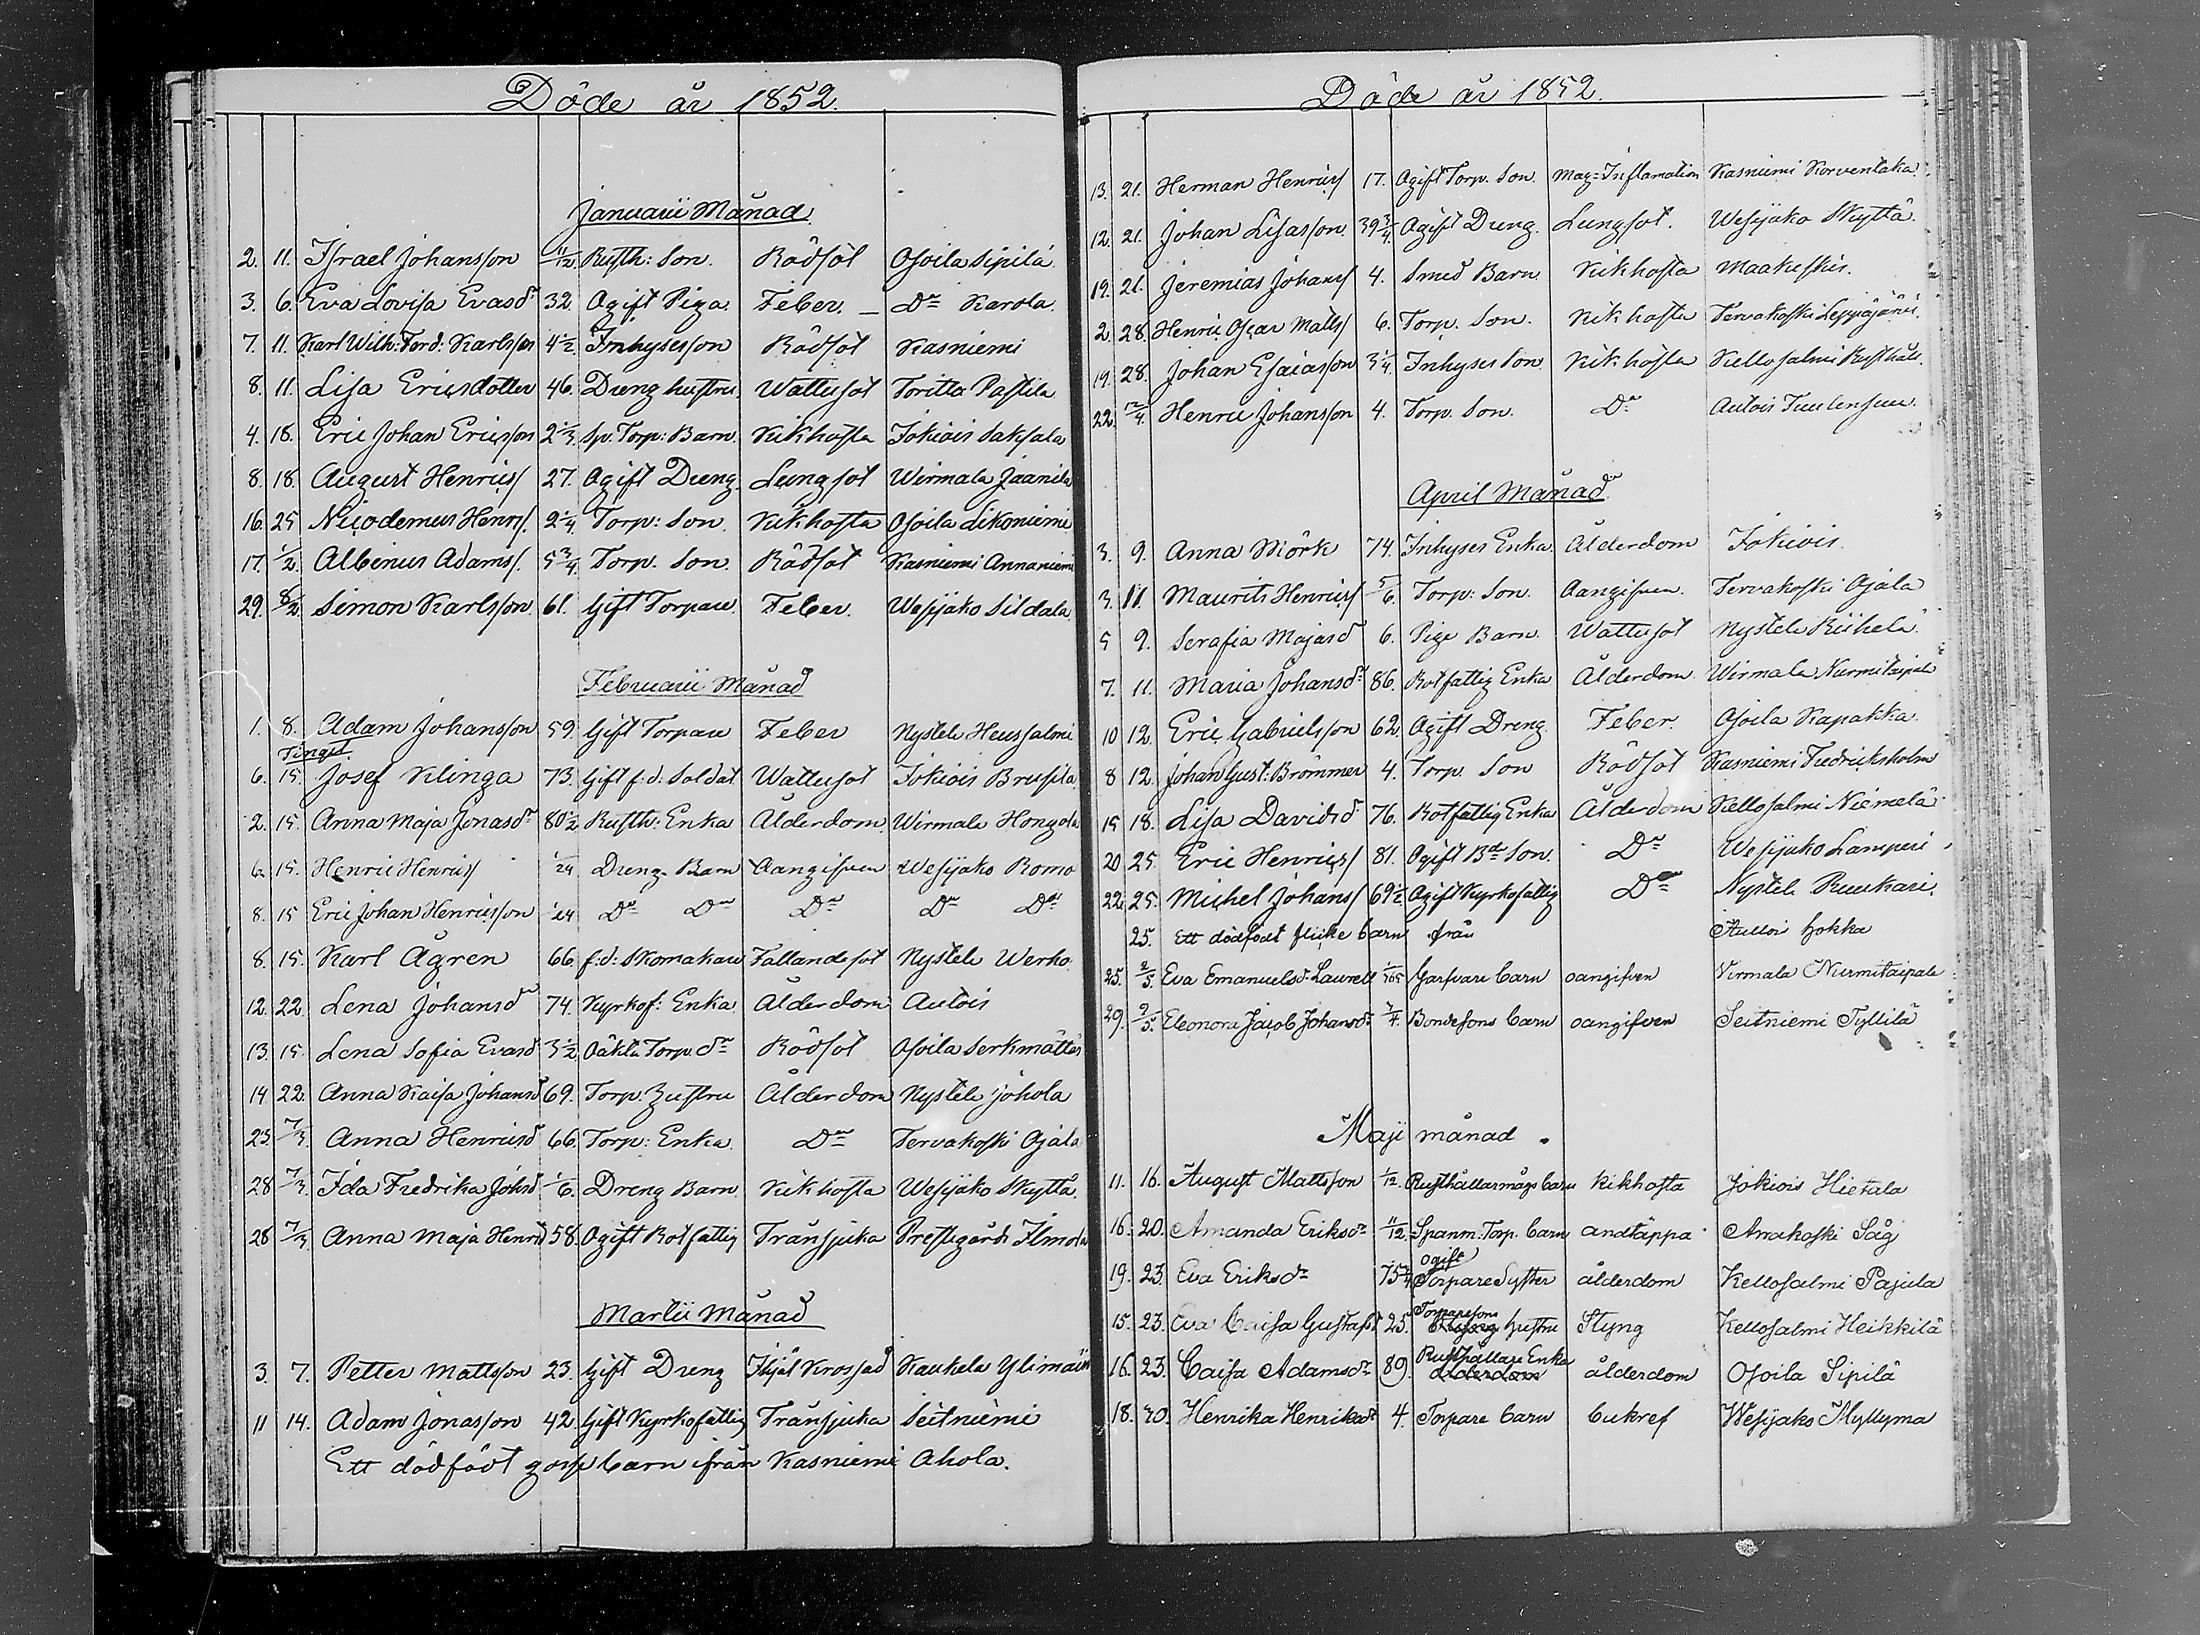 Döde år 1852.
Januarii Månad
2. 11. Israel Johansson 11/12 Rusth: Son. Rödsot Osoila Sipilä
3. 6. Eva Lovisa Evasdr 32 Ogift Piga. Feber. — Do Karola.
7. 11. Karl Wilh: Ferd: Karlsson 4 1/2 Inhysesson Rödsot Kasniemi
8. 11. Lisa Ericsdotter 46. Dreng hustru Wattusot Toritto Pastila
4. 18. Eric Johan Ericsson 2 1/3 Sp. Torp: Barn. Kikhosta Jokiois Saksala
8. 18. August Henrics/ 27. Ogift Dreng. Lungsot Wirmala Jaanila
16. 25 Nicodemus Henrs/. 2 1/4 Torp: Son. Kikhosta Osoila Likoniemi
17. 1/2. Albinus Adams/. 5 3/4 Torp. Son. Rödsot Kasniemi Annaniemi
29. 8/2. Simon Karlsson. 61. Gift Torpare Feber. Wesijako Sildala
Februarii Månad
1. 8. Adam Johansson 59. Gift Torpare Feber Nystele Heussalmi
Tinget
6. 15. Josef Klinga 73. Gift f:d: Soldat Wattusot Jokiois Bruspila
2. 15. Anna Maja Jonasdr 80 1/2 Rusth: Enka Ålderdom Wirmala Hongola
6. 15. Henric Henrics/ 1/24 Dreng-Barn Oangifven Wesijako Romo
8. 15 Eric Johan Henricsson 1/24 Do Do Do Do Do
8. 15. Karl Ågren 66. f:d: Skomakare Fallandesot Nystele Werho
12. 22. Lena Johansdr 74. Kyrkof: Enka. Ålderdom Autois
13. 15. Lena Sofia Evasd 3 1/2 Oäkta Torp. dr Rödsot Osoila Serkmättäs
14 22. Anna Kaisa Johansd 69. Torp. Hustru Ålderdom Nystele Johola
23. 7/3. Anna Henricsd 66. Torp: Enka. Do Tervakoski Ojala
28 7/3. Ida Fredrika Johsd 1/6. Dreng Barn. Kikhosta Wesijako Skyttä.
28 7/3. Anna Maja Henrsd 58. Ogift Rotfattig Trånsjuka Prestgårds Ilmola
Martii Månad
3. 7. Petter Mattsson 23. Gift Dreng Ihjäl Krossad Kaukela Ylimäin
11 14. Adam Jonasson 42. Gift Kyrkofattig Trånsjuka Seitniemi
Ett dödfödt gosse barn ifrån Kasniemi Ahola.
Döde år 1852.
13. 21. Herman Henrics/ 17. Ogift Torp. Son. Mag-Inflamation Kasniemi Korventaka
12. 21. Johan Lisasson 39 3/4. Ogift Dreng. Lungsot. Wesijako Skyttä.
19. 21. Jeremias Johans/ 4. Smed Barn Kikhosta Maakeskis.
2. 28. Henric Oscar Matts/ 6. Torp. Son. Kikhosta Tervakoski Leppäjärvi.
19. 28. Johan Esaiasson 3 1/4. Inhyses Son Kikhosta Kellosalmi Rusthåll.
22. 12/4. Henric Johansson 4. Torp. Son. Do Autois Tuulensuu.
April Månad
3. 9. Anna Mörk 74. Inhyses Enka. Ålderdom Jokiois.
3. 11. Maurits Henrics/ 5/6. Torp: Son. Oangifven. Tervakoski Ojala
5 9. Serafia Majasd 6. Pige Barn. Wattusot Nystele Riihelä.
7. 11. Maria Johansdr 86. Rotfattig Enka Ålderdom. Wirmala Nurmitaipale
10 12. Eric Gabrielsson 62. Ogift Dreng. Feber. Osoila Kapakka.
8 12. Johan Gust: Brömmer 4. Torp. Son Rödsot Kasniemi Fredriksholm
15 18. Lisa Davidsd 76. Rotfattig Enka Ålderdom Kellosalmi Niemelä
20 25. Eric Henrics/ 81. Ogift Bde Son. Do Wesijako Lamperi
22. 25. Michel Johans/ 69 1/2. Ogift Kyrkofattig Do Nystele Ruukari.
25. Ett dödfödt flicke barn från Autois Hokka
25. 2/5. Eva Emanuelsd Laurell 1/105 Garfvare barn oangifven Virmala Nurmitaipale
29. 2/5. Eleonora Jacob Johansdr 3/4. Bondesons barn oangifven Seitniemi Tyllilä
Maji månad.
11. 16. August Mattsson 1/12. Rusthållarmågs barn kikhosta Jokiois Hietala
16. 20. Amanda Eriksdr 11/12. Spanm: Torp. barn andtäppa Arrakoski Såg
ogift
19. 23. Eva Eriksdr 75 3/4 Torpare Syster ålderdom Kellosalmi Pajula
Torparesons
15. 23. Eva Caisa Gustafsd 25. hustru Styng Kellosalmi Heikkilä
Rusthållare Enka
16. 23. Caisa Adamsdr 89. ålderdom ålderdom Osoila Sipilä
18. 30. Henrika Henriksdr 4. Torpare barn bukref Wesijako Myllyma